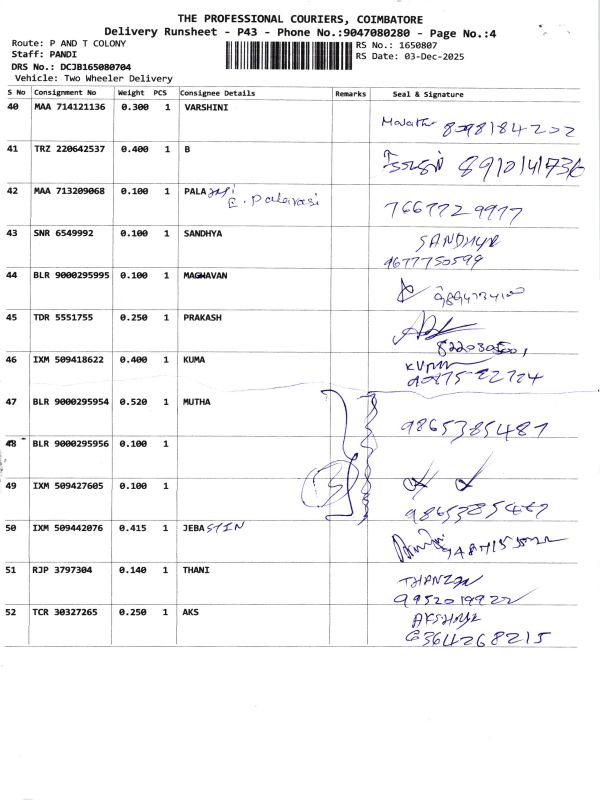 THE PROFESSIONAL COURIERS, COIMBATORE
Delivery Runsheet - P43 - Phone No.:9047080280 - Page No.:4
Route: P AND T COLONY
Staff: PANDI
DRS No.: DCJB165080704
Vehicle: Two Wheeler Delivery
RS No.: 1650807
RS Date: 03-Dec-2025
S No Consignment No Weight PCS Consignee Details Remarks Seal & Signature
40 MAA 714121136 0.300 1 VARSHINI
41 TRZ 220642537 0.400 1 B
42 MAA 713209068 0.100 1 PALA
E. Palavasi
7667729977
43 SNR 6549992 0.100 1 SANDHYA SANDHYA
9677750599
44 BLR 9000295995 0.100 1 MAGHAVAN
45 TDR 5551755 0.250 1 PRAKASH
46 IXM 509418622 0.400 1 KUMA
47 BLR 9000295954 0.520 1 MUTHA 9865385487
48 BLR 9000295956 0.100 1
49 IXM 509427605 0.100 1
9865385487
50 IXM 509442076 0.415 1 JEBASTIN
51 RJP 3797304 0.140 1 THANI
9952019922
52 TCR 30327265 0.250 1 AKS AKSHAYA
6364268215